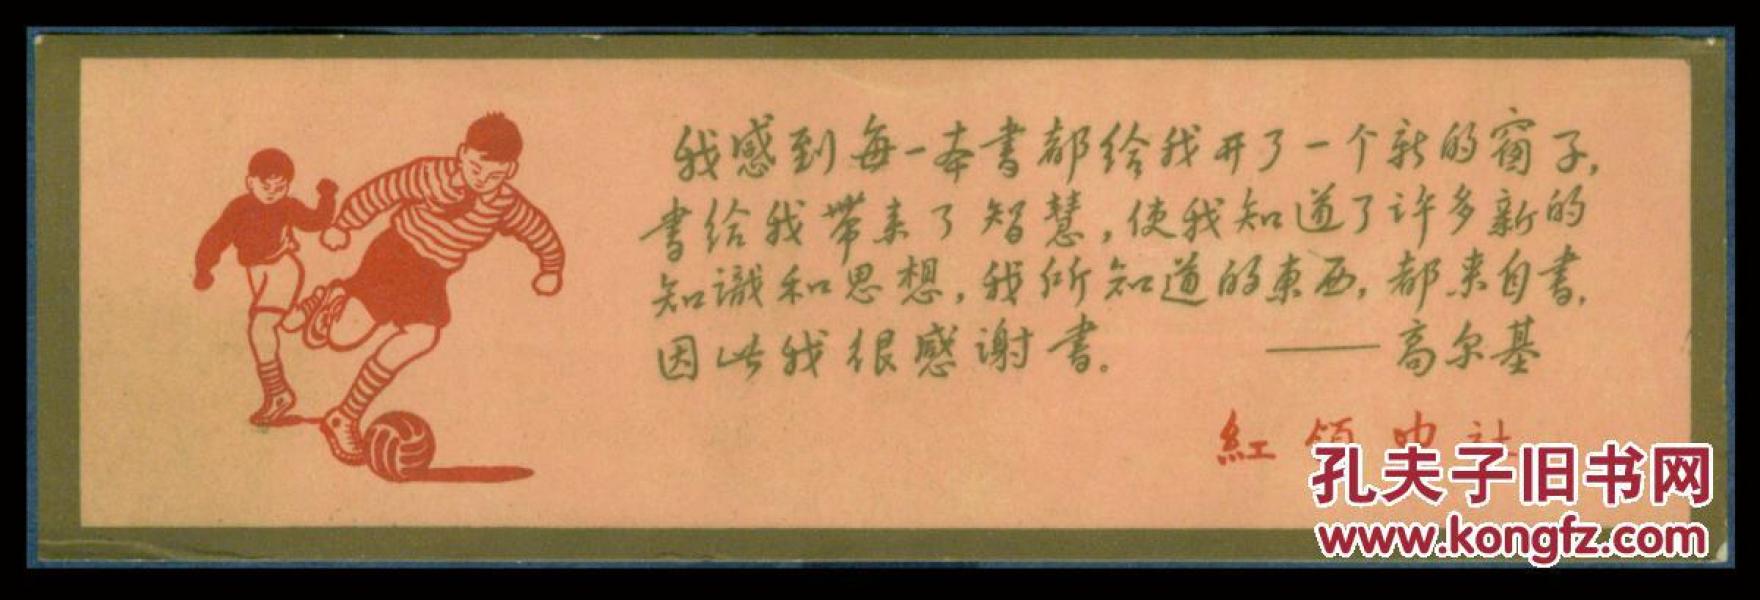 我感到每一本書都给我开了一个新的窗子,
書给我带来了智慧,使我知道了许多新的
知識和思想,我所知道的東西,都来自書,
因此我很感謝書。 ——高尔基
紅領巾社
孔夫子旧书网
www.kongfz.com